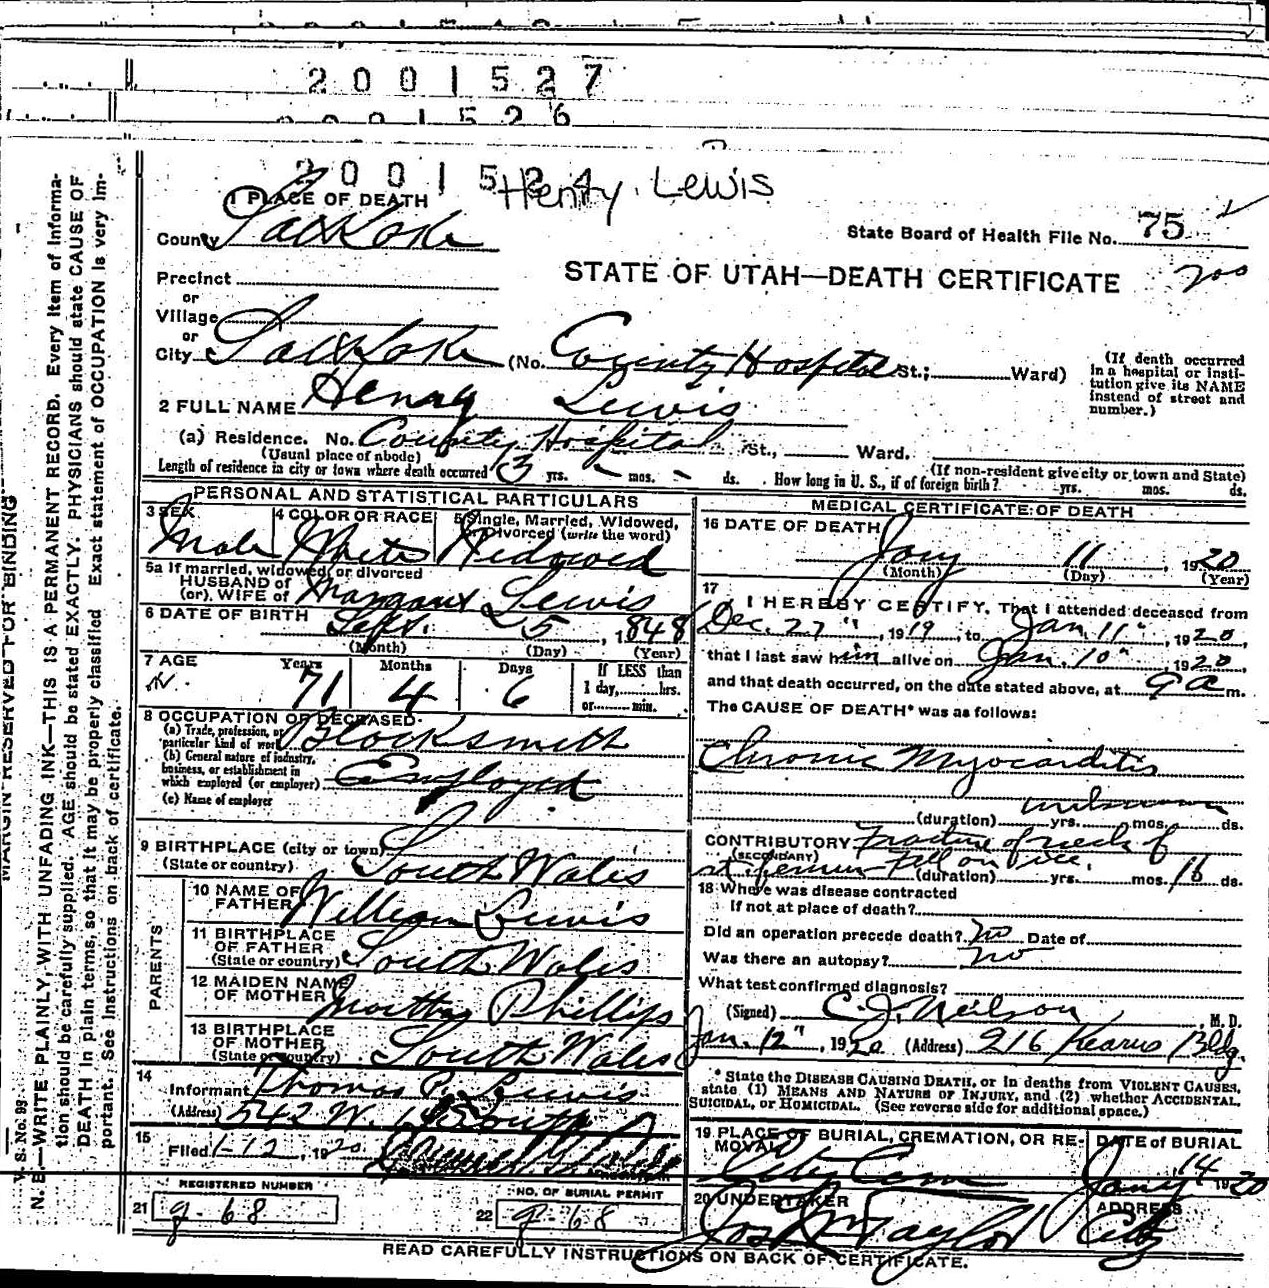 2001527
2001526
200152
Henry Lewis
1 PLACE OF DEATH
County Salt Lake
State Board of Health File No. 75
Precinct
STATE OF UTAH—DEATH CERTIFICATE
200
or
Village
or
City Salt Lake (No. County Hospital St.; Ward)
(If death occurred in a hospital or insti-
tution give its NAME
instead of street and
number.)
2 FULL NAME Henry Lewis
(a) Residence. No. County Hospital St., Ward.
(Usual place of abode)
(If non-resident give city or town and State)
Length of residence in city or town where death occurred 3 yrs. - mos. - ds. How long in U. S., if of foreign birth? yrs. mos. ds.
PERSONAL AND STATISTICAL PARTICULARS
3 SEX 4 COLOR OR RACE 5 Single, Married, Widowed,
or Divorced (write the word)
Male White Widowed
5a If married, widowed, or divorced
HUSBAND of
(or) WIFE of Margaret Lewis
6 DATE OF BIRTH Sept. 5, 1848
(Month) (Day) (Year)
7 AGE Years Months Days If LESS than
71 4 6 1 day, hrs.
or min.
8 OCCUPATION OF DECEASED
(a) Trade, profession, or
particular kind of work Blacksmith
(b) General nature of industry,
business, or establishment in
which employed (or employer) Employed
(c) Name of employer
9 BIRTHPLACE (city or town)
(State or country) South Wales
PARENTS
10 NAME OF
FATHER William Lewis
11 BIRTHPLACE
OF FATHER
(State or country) South Wales
12 MAIDEN NAME
OF MOTHER Phillips
13 BIRTHPLACE
OF MOTHER
(State or country) South Wales
14
Informant Thomas P. Lewis
(Address) 542 W. South
15
Filed 1-12, 1920
REGISTRAR
REGISTERED NUMBER
21 g-68
NO. OF BURIAL PERMIT
22 g-68
MEDICAL CERTIFICATE OF DEATH
16 DATE OF DEATH
Jany 11, 1920
(Month) (Day) (Year)
17
I HEREBY CERTIFY, That I attended deceased from
Dec. 27", 1919, to Jan. 11", 1920,
that I last saw him alive on Jan. 10", 1920,
and that death occurred, on the date stated above, at 9 a m.
The CAUSE OF DEATH* was as follows:
Chronic Myocarditis
unknown
(duration) yrs. mos. ds.
CONTRIBUTORY Fracture of neck of
(SECONDARY)
rt femur - Fall on ice. (duration) yrs. mos. 16 ds.
18 Where was disease contracted
If not at place of death?
Did an operation precede death? no Date of
Was there an autopsy? no
What test confirmed diagnosis?
(Signed) C. J. Neilson, M. D.
Jan. 12", 1920 (Address) 916 Kearns Bldg.
* State the DISEASE CAUSING DEATH, or in deaths from VIOLENT CAUSES,
state (1) MEANS AND NATURE OF INJURY, and (2) whether ACCIDENTAL,
SUICIDAL, or HOMICIDAL. (See reverse side for additional space.)
19 PLACE OF BURIAL, CREMATION, OR RE-
MOVAL
City Cem
DATE of BURIAL
Jany 14 1920
20 UNDERTAKER
Jos Wm Taylor
ADDRESS
City
READ CAREFULLY INSTRUCTIONS ON BACK OF CERTIFICATE.
MARGIN RESERVED FOR BINDING
V. S. No. 99
N. B.—WRITE PLAINLY, WITH UNFADING INK—THIS IS A PERMANENT RECORD. Every item of informa-
tion should be carefully supplied. AGE should be stated EXACTLY. PHYSICIANS should state CAUSE OF
DEATH in plain terms, so that it may be properly classified. Exact statement of OCCUPATION is very im-
portant. See instructions on back of certificate.